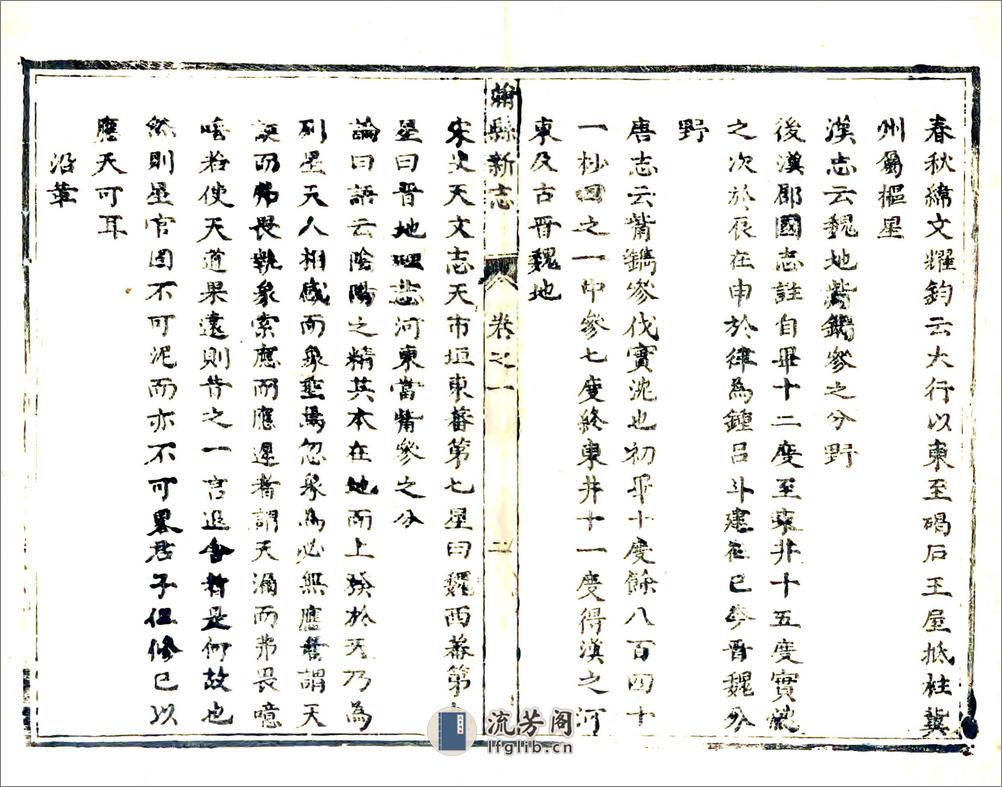 春秋緯文耀鈎云大行以東至碣石王屋抵柱冀
州屬樞星
漢志云魏地觜鐫參之分野
後漢郡國志註自畢十二度至東井十五度實沈
之次於辰在申於律為鍾呂斗建在巳今晉魏分
野
唐志云觜鐫參伐實沈也初畢十度餘八百四十
一杪四之一中參七度終東井十一度得漢之河
東及古晉魏地
宋史天文志天市垣東蕃第七星曰魏西蕃第
星曰晉地理志河東當觜參之分
論曰語云陰陽之精其本在地而上發於天乃為
列星天人相感而象聖焉忽象為必無應者謂天
誤而弗畏執象索應而應遲者謂天漏而弗畏噫
嘻若使天道果遠則昔之一言退舍者是何故也
然則星官固不可泥而亦不可畧君子但修已以
應天可耳
沿革
縣新志
卷之一
二
流芳阁
lfglib.cn